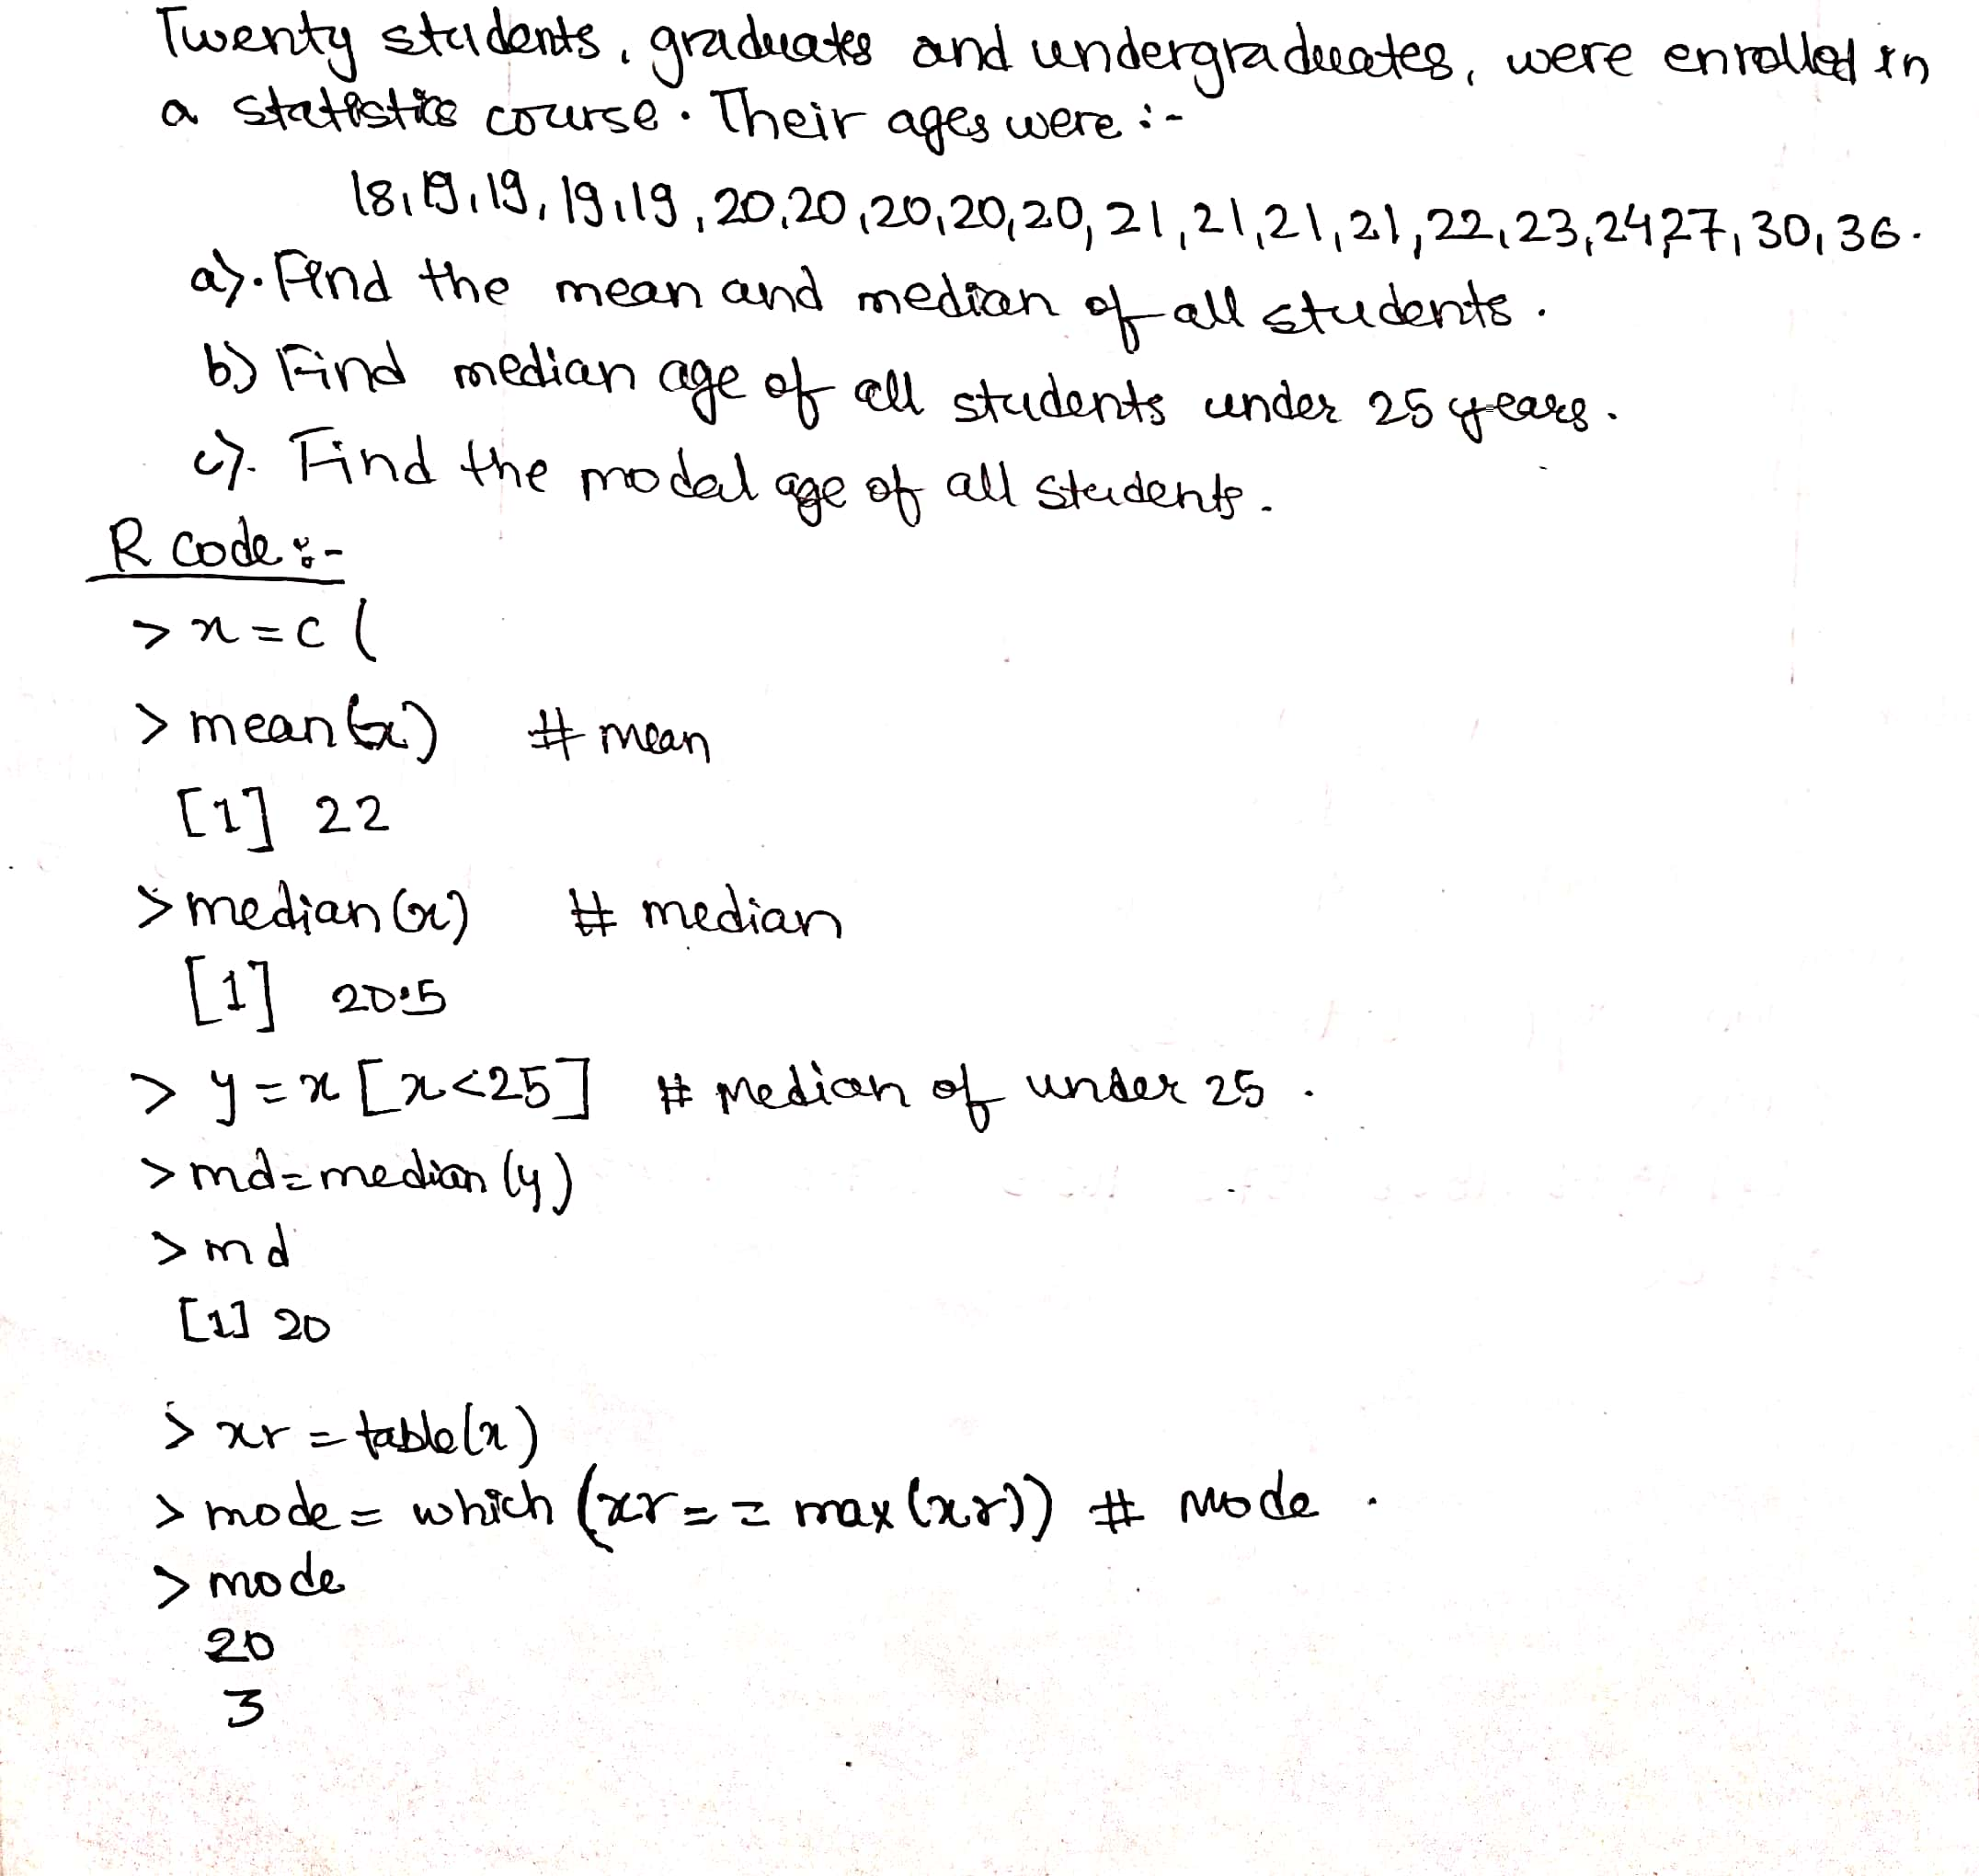 Twenty students, graduates and undergraduates, were enrolled in
a statistics course. Their ages were :-
18,19,19,19,19,20,20,20,20,20,21,21,21,21,22,23,24,27,30,36.
a). Find the mean and median of all students.
b) Find median age of all students under 25 years.
c). Find the modal age of all students.
R code :-
> x = c (
> mean (x) # mean
[1] 22
> median (x) # median
[1] 20.5
> y = x [x<25] # Median of under 25.
> md = median (y)
> md
[1] 20
> xr = table(x)
> mode = which (xr == max (xr)) # Mode.
> mode
20
3